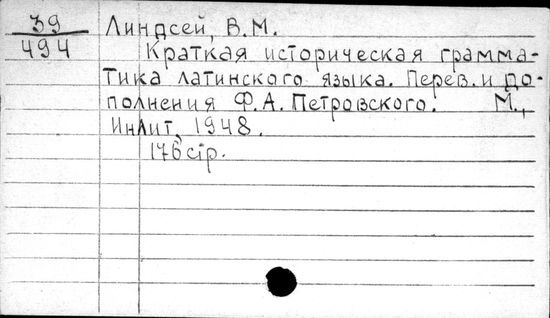 39 Линдсей, В.М.
494 Краткая историческая грамма-
тика латинского языка. Перев. и до-
полнения Ф.А. Петровского. М.,
Инлит, 1948.
176 стр.